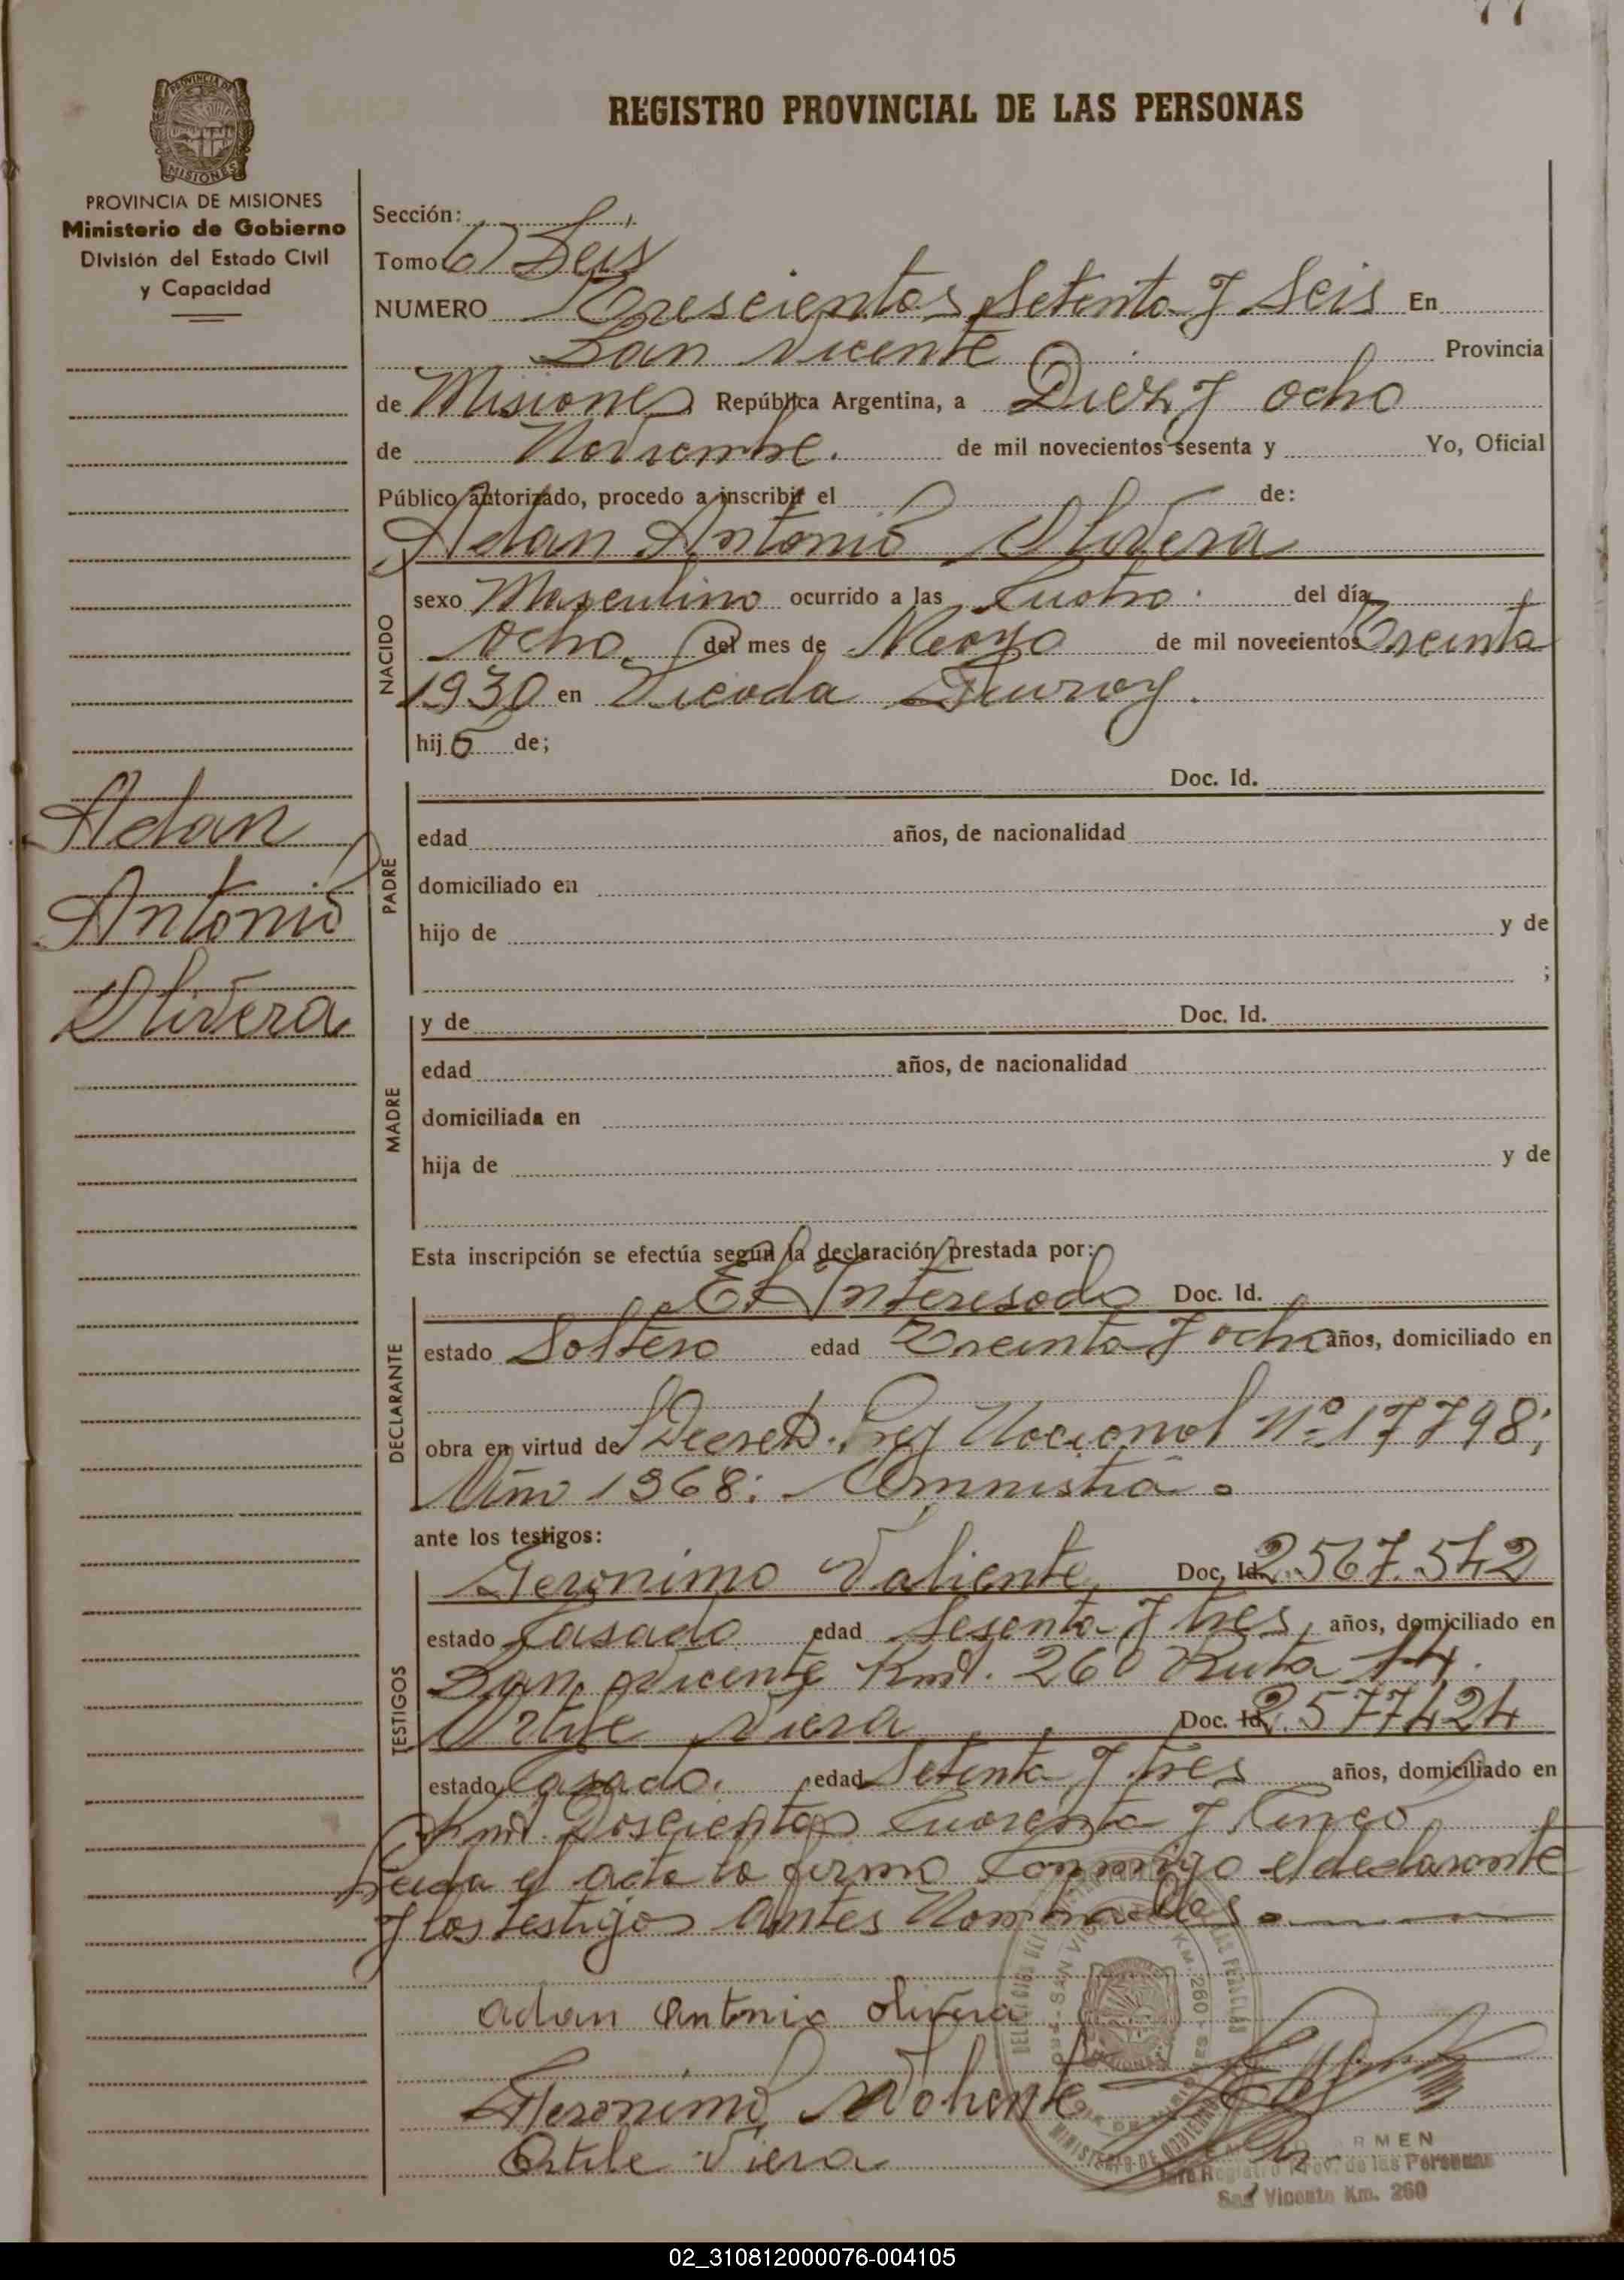 77
REGISTRO PROVINCIAL DE LAS PERSONAS
PROVINCIA DE MISIONES
MISIONES
PROVINCIA DE MISIONES
Ministerio de Gobierno
División del Estado Civil
y Capacidad
Sección:
Tomo 6) Seis
NUMERO Trescientos Setenta y Seis En
San Vicente Provincia
de Misiones República Argentina, a Diez y ocho
de Noviembre. de mil novecientos sesenta y Yo, Oficial
Público autorizado, procedo a inscribir el de:
Adan Antonio Olivera
NACIDO
sexo Masculino ocurrido a las Cuatro del día
ocho del mes de Mayo de mil novecientos Treinta
1930 en Picada
hijo de;
Adan
Antonio
Olivera
PADRE
Doc. Id.
edad años, de nacionalidad
domiciliado en
hijo de y de
;
MADRE
y de Doc. Id.
edad años, de nacionalidad
domiciliada en
hija de y de
Esta inscripción se efectúa según la declaración prestada por:
DECLARANTE
El Interesado Doc. Id.
estado Soltero edad Treinta y ocho años, domiciliado en
obra en virtud de Decreto. Ley Nacional Nº 17798;
Año 1968: Amnistia.
ante los testigos:
TESTIGOS
Geronimo Valiente Doc. Id. 2.567.542
estado Casado edad Sesenta y tres años, domiciliado en
San Vicente Kmt. 260 Ruta 14.
Ortile Viera Doc. Id. 2.577424
estado Casado. edad Setenta y tres años, domiciliado en
Kmt. Doscientos Cuarenta y Cinco
Leida el acta la firma Conmigo el declarante
y los testigos Antes Nombrados.
adan antonio olivera
Geronimo Valiente
Ortile Viera
RMEN
Jefe Registro Prov. de las Personas
San Vicente Km. 260
02_310812000076-004105